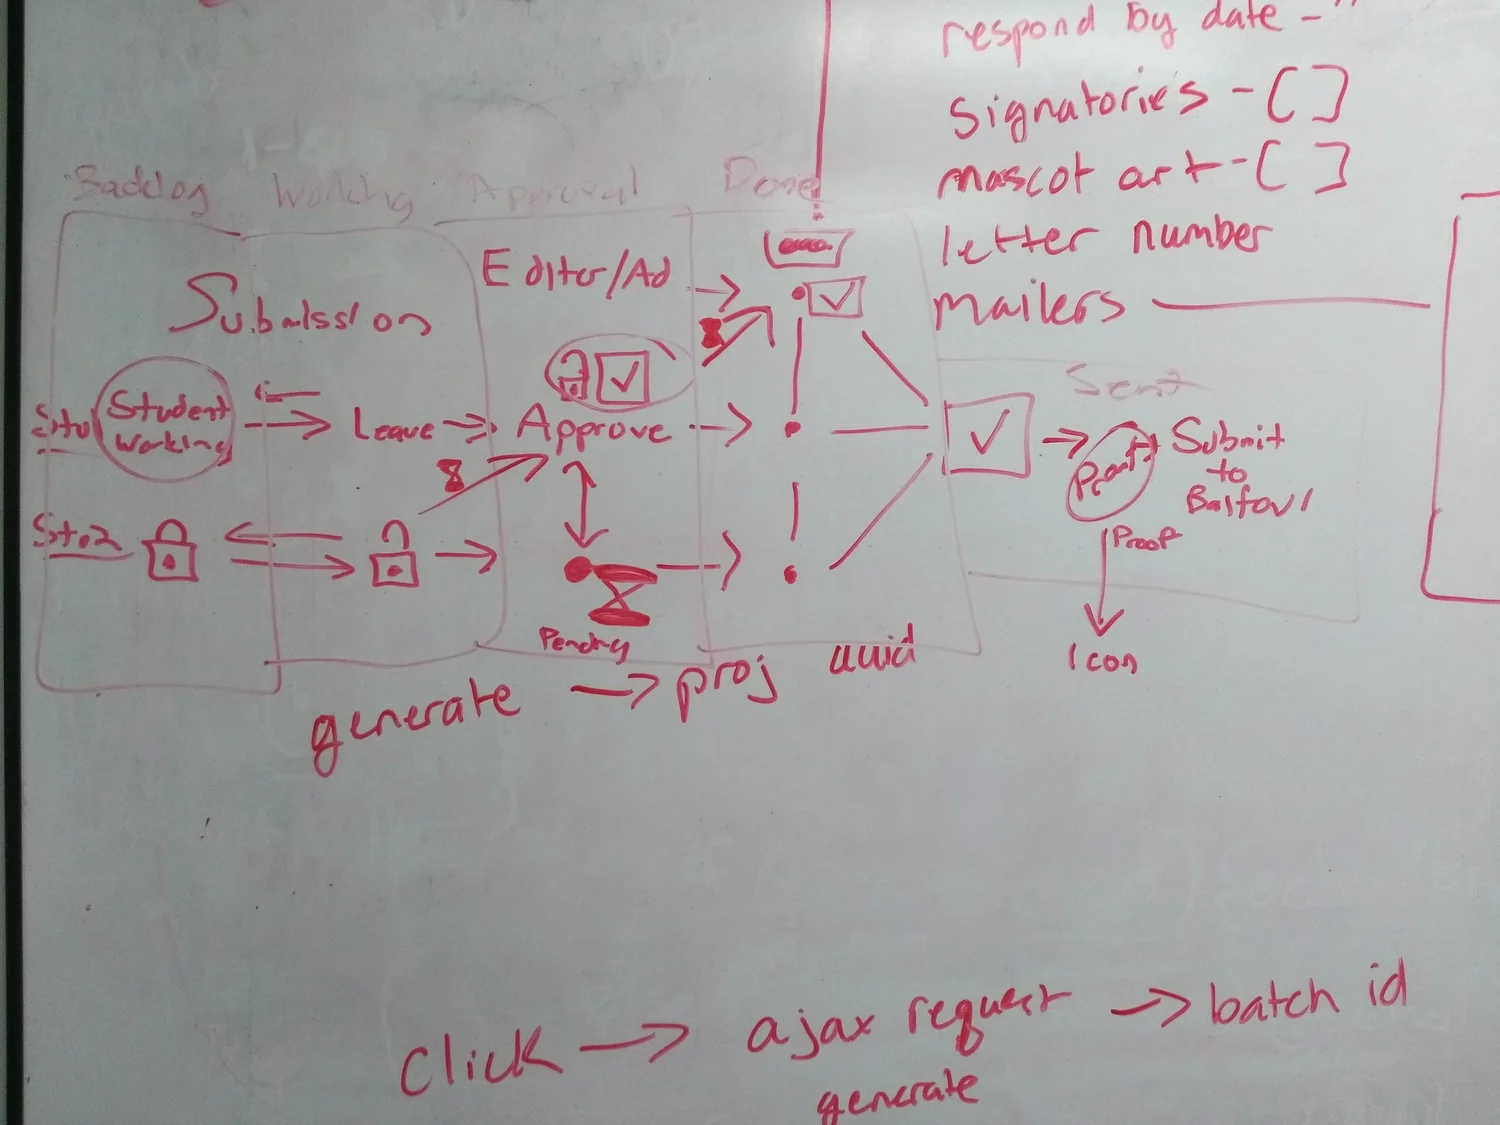 respond by date - "
signatories - [ ]
mascot art - [ ]
letter number
mailers
Backlog Working Approval Done
Submission
Editor/Ad
Student
Working
Leave
Approve
Sent
Submit
to
Balfour
Proof
Icon
Stu2
Pending
generate → proj uuid
click → ajax request → batch id
generate